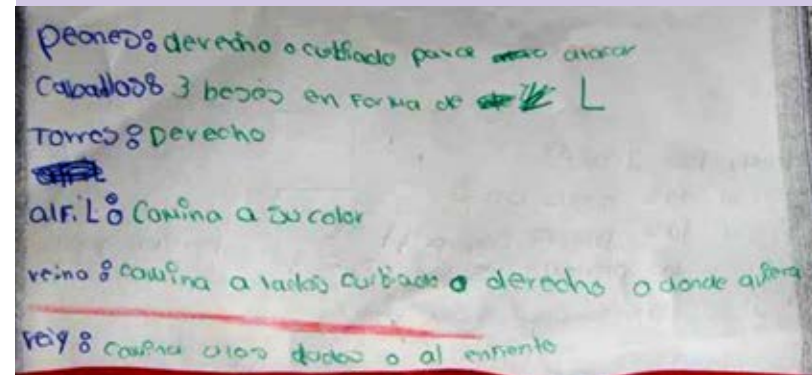 Peones: derecho o curbiado parce atacar
Caballos: 3 beses en forma de L
Torres: Derecho
alfiL: Camina a su color
reina: camina a lados curbiado o derecho a donde quiera
reiy: camina alos dados o al enfrente